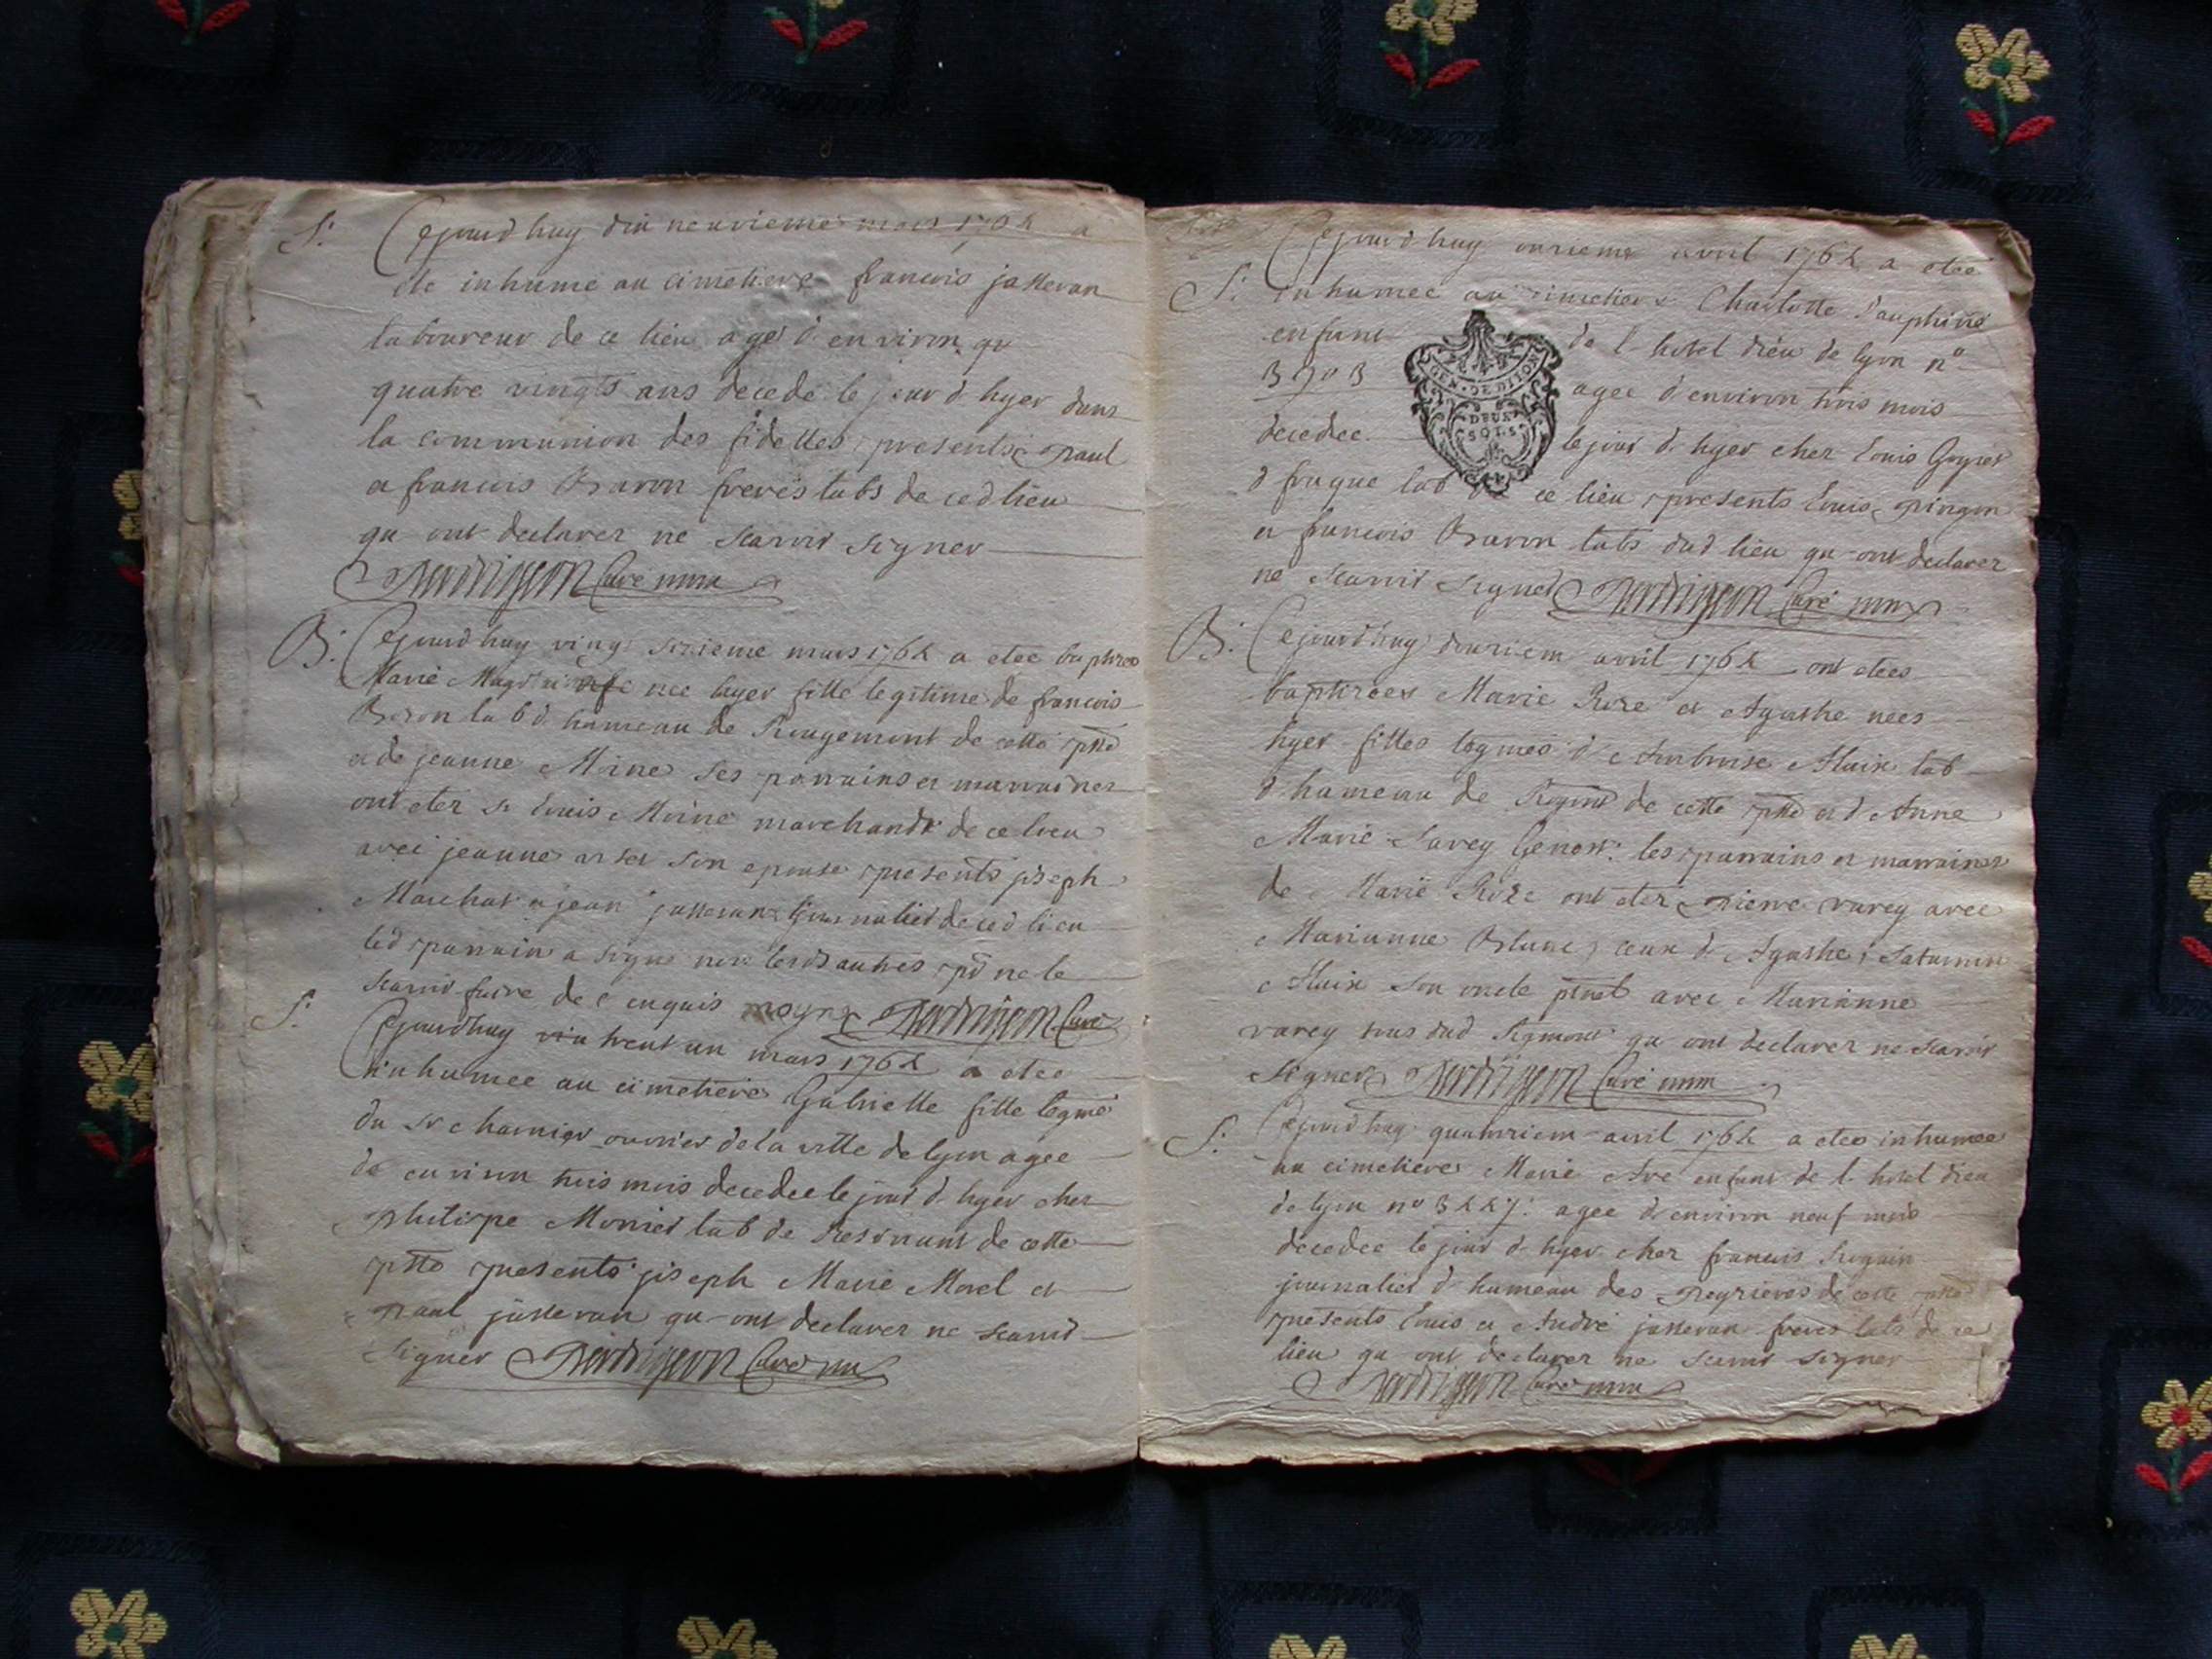 S. Cejourdhuy dix neuvieme mars 1764 a
ete inhumé au cimetiere francois jasseran
laboureur de ce lieu agé d environ qu
quatre vingts ans decedé le jour d hyer dans
la communion des fidelles presents paul
et francois Baron freres labs de ced lieu
qu ont declarer ne scavoir signer
Perdrigeon Curé
B. Cejourdhuy vingt sixieme mars 1764 a etee baptizee
Marie nee hyer fille legitime de francois
Baron lab d hameau de Rougemont de cette psse
et de jeanne Moine ses parrains et marraines
ont eter sr Louis Moine marchand de ce lieu
avec jeanne son epouse presents joseph
Marchat et jean jasseran journalier de ced lieu
led parrain a signe non lesds autres pour ne le
scavoir faire de c enquis moyne Perdrigeon Curé
S. Cejourdhuy trent un mars 1764 a etee
inhumee au cimetiere Gabrielle fille legme
du sr charnier ouvrier de la ville de lyon agee
de environ trois mois decedee le jour d hyer chez
philippe Monier lab de de cette
psse presents joseph Marie Morel et
paul jasseran qu ont declarer ne scavoir
signer Perdrigeon Curé
Cejourdhuy onzieme avril 1764 a etee
S. inhumee au cimetiere Charlotte Dauphine
enfant de l hotel dieu de lyon n°
3703 agee d environ trois mois
GEN. DE DIJON
DEUX
SOLS
decedee le jour d hyer chez Louis
lab de ce lieu presents Louis pingon
et francois Baron labs dud lieu qu ont declarer
ne scavoir signer Perdrigeon Curé
B. Cejourdhuy douziem avril 1764 ont etees
baptizees Marie Roze et Agathe nees
hyer filles legmes d Ambroise Alaix lab
d hameau de de cette psse et d Anne
Marie Savey les parrains et marraines
de Marie Roze ont eter pierre varey avec
Marianne Blanc, ceux d Agathe, Saturnin
Alaix son oncle avec Marianne
varey tous dud qu ont declarer ne scavoir
signer Perdrigeon Curé
S. Cejourdhuy quatorziem avril 1764 a etee inhumee
au cimetiere Marie enfant de l hotel dieu
de lyon n° 3447 agee d environ neuf mois
decedee le jour d hyer chez francois
journalier d hameau des peyrieres de cette psse
presents Louis et André jasseran freres labs de ce
lieu qu ont declarer ne scavoir signer
Perdrigeon Curé